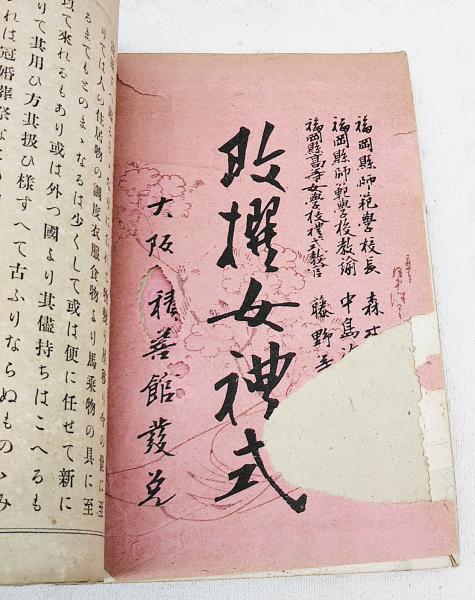 福岡縣師範學校長 森
福岡縣師範學校教諭 中島
福岡縣高等女學校禮式教官 藤野至
改撰女禮式
大阪 積善館發兌
りては人の住居物の調度衣服食物より馬乘物の具に至
るまでもとのまゝなるは少くして或は便に任せて新に
以て來れるもあり或は外つ國より其儘持ちはこへるも
りて其用ひ方其扱ひ樣すへて古ふりならぬものゝみ
れは冠婚葬祭